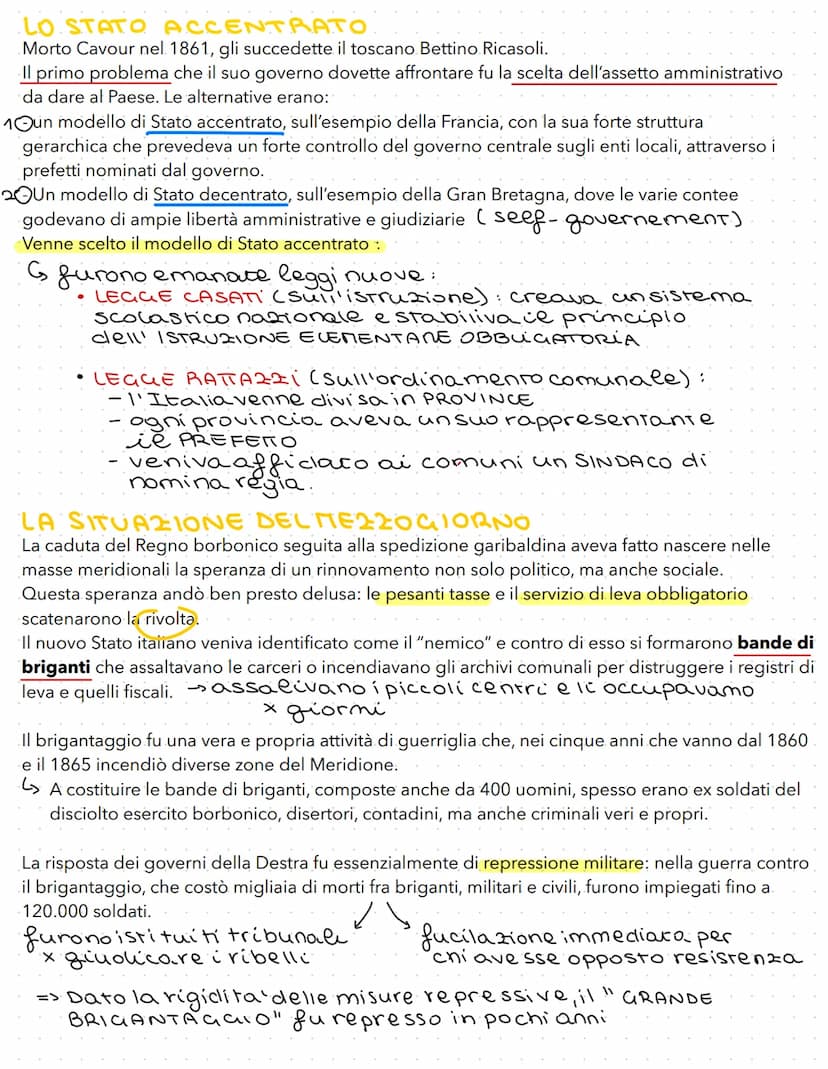 LO STATO ACCENTRATO
Morto Cavour nel 1861, gli succedette il toscano Bettino Ricasoli.
Il primo problema che il suo governo dovette affrontare fu la scelta dell'assetto amministrativo
da dare al Paese. Le alternative erano:
1 un modello di Stato accentrato, sull'esempio della Francia, con la sua forte struttura
gerarchica che prevedeva un forte controllo del governo centrale sugli enti locali, attraverso i
prefetti nominati dal governo.
2 Un modello di Stato decentrato, sull'esempio della Gran Bretagna, dove le varie contee
godevano di ampie libertà amministrative e giudiziarie (self-governement)
Venne scelto il modello di Stato accentrato :
↳ furono emanate leggi nuove:
• LEGGE CASATI (sull'istruzione) : creava un sistema
scolastico nazionale e stabiliva il principio
dell' ISTRUZIONE ELEMENTARE OBBLIGATORIA
• LEGGE RATTAZZI (sull'ordinamento comunale) :
- l'Italia venne divisa in PROVINCE
- ogni provincia aveva un suo rappresentante
il PREFETTO
- veniva affidato ai comuni un SINDACO di
nomina regia.
LA SITUAZIONE DEL MEZZOGIORNO
La caduta del Regno borbonico seguita alla spedizione garibaldina aveva fatto nascere nelle
masse meridionali la speranza di un rinnovamento non solo politico, ma anche sociale.
Questa speranza andò ben presto delusa: le pesanti tasse e il servizio di leva obbligatorio
scatenarono la rivolta.
Il nuovo Stato italiano veniva identificato come il "nemico" e contro di esso si formarono bande di
briganti che assaltavano le carceri o incendiavano gli archivi comunali per distruggere i registri di
leva e quelli fiscali. → assalivano i piccoli centri e li occupavamo
x giorni
Il brigantaggio fu una vera e propria attività di guerriglia che, nei cinque anni che vanno dal 1860
e il 1865 incendiò diverse zone del Meridione.
↳ A costituire le bande di briganti, composte anche da 400 uomini, spesso erano ex soldati del
disciolto esercito borbonico, disertori, contadini, ma anche criminali veri e propri.
La risposta dei governi della Destra fu essenzialmente di repressione militare: nella guerra contro
il brigantaggio, che costò migliaia di morti fra briganti, militari e civili, furono impiegati fino a
120.000 soldati.
furono istituiti tribunali
x giudicare i ribelli
fucilazione immediata per
chi avesse opposto resistenza
=> Dato la rigidità delle misure repressive, il "GRANDE
BRIGANTAGGIO" fu represso in pochi anni